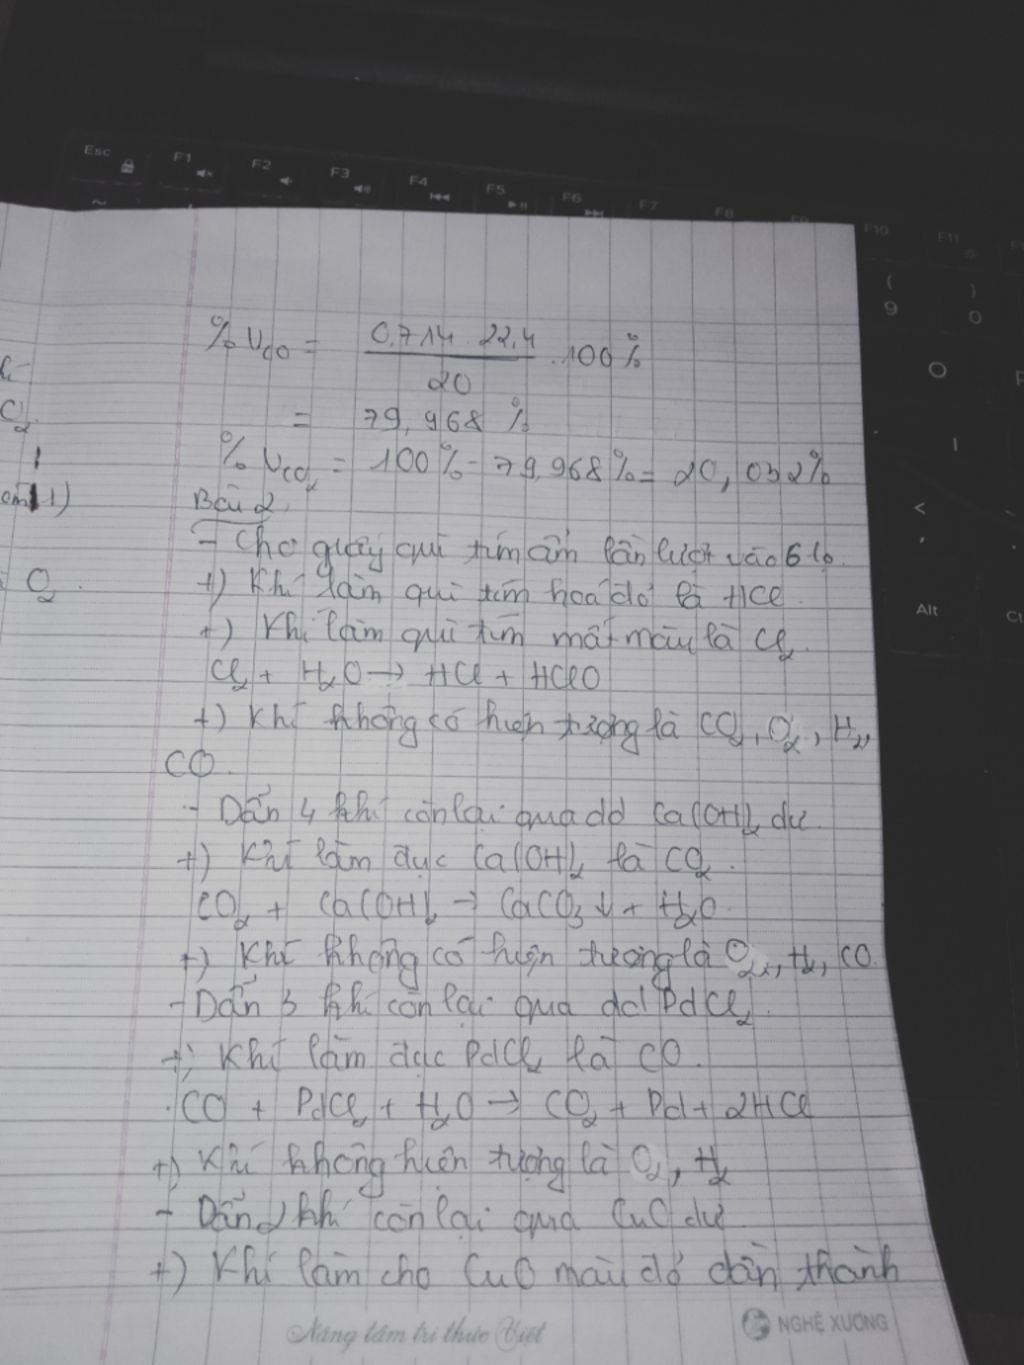 Esc F1 F2 F3 F4 F5 F6 F7 F8 F9 F10 F11
( 9 ) 0
O
Alt
hí
O2
1)
O2
%VCO = 0,714 . 22,4 / 20 . 100%
= 79,968 %
%VCO2 = 100% - 79,968% = 20,032%
Bài 2
- Cho quỳ quì tím ẩm lần lượt vào 6 lọ.
+) Khí làm quì tím hoá đỏ là HCl
+) Khí làm quì tím mất màu là Cl2.
Cl2 + H2O → HCl + HClO
+) Khí không có hiện tượng là CO2, O2, H2,
CO.
- Dẫn 4 khí còn lại qua dd Ca(OH)2 dư.
+) Khí làm đục Ca(OH)2 là CO2.
CO2 + Ca(OH)2 → CaCO3↓ + H2O.
+) Khí không có hiện tượng là O2, H2, CO.
- Dẫn 3 khí còn lại qua dd PdCl2.
+) Khí làm đục PdCl2 là CO.
CO + PdCl2 + H2O → CO2 + Pd + 2HCl
+) Khí không hiện tượng là O2, H2
- Dẫn 2 khí còn lại qua CuO dư.
+) Khí làm cho CuO màu đỏ dần thành
Nâng tầm tri thức Việt
NGHỆ XƯƠNG